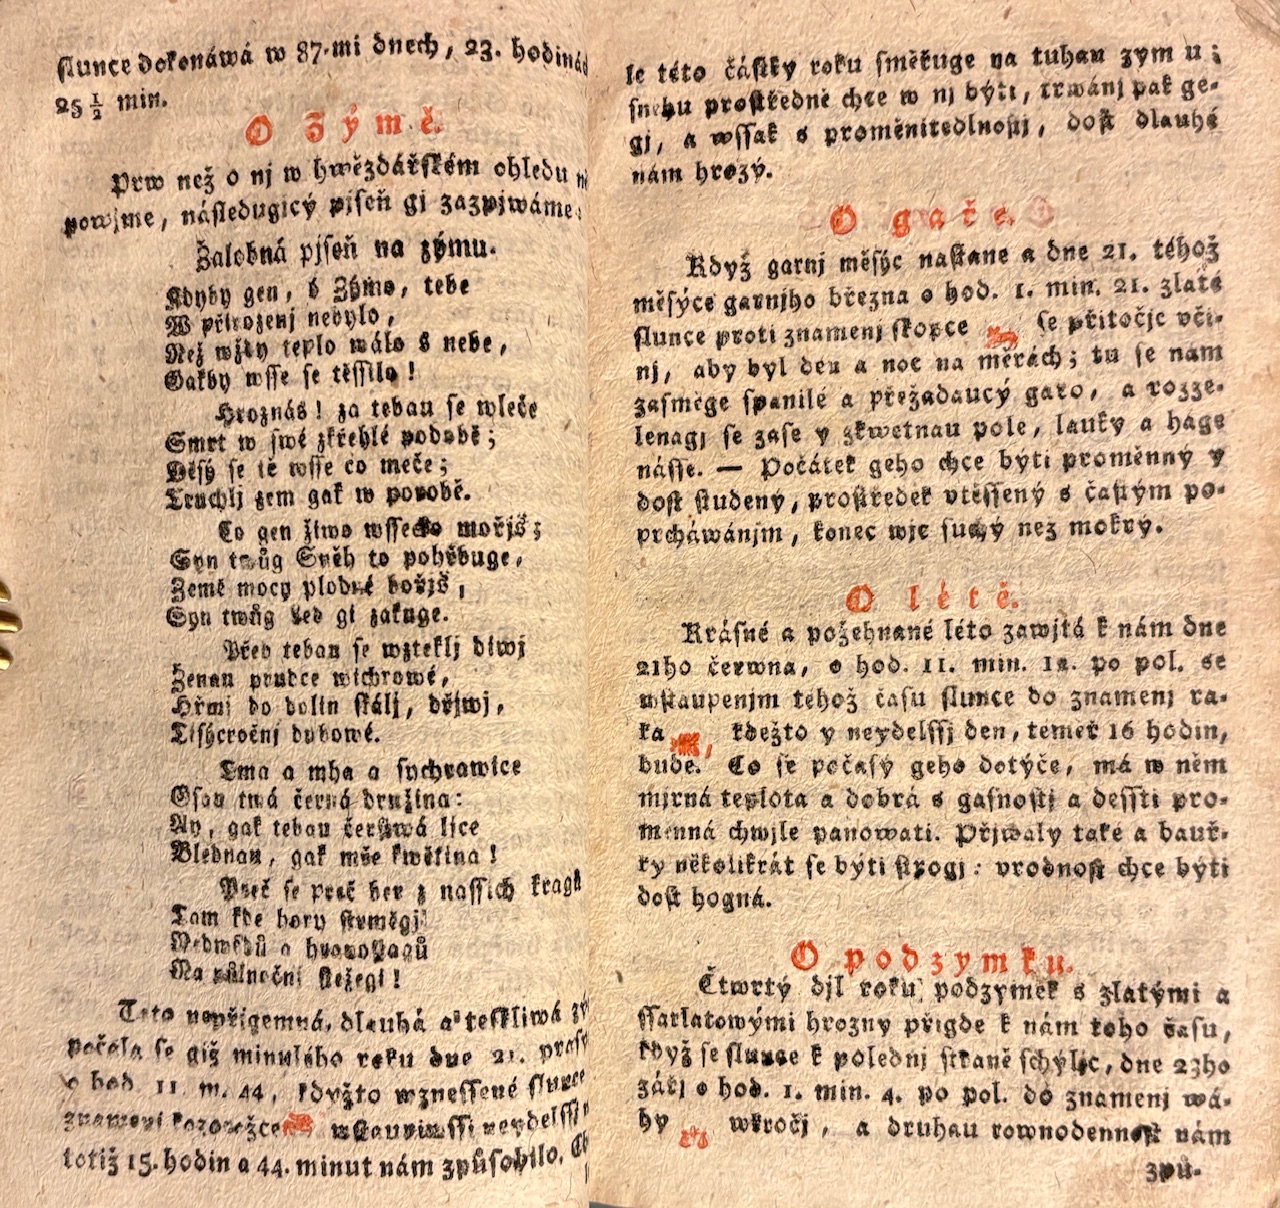 slunce dokonáwá w 87-mi dnech, 23. hodinác
25 1/2 min.
O Zýmě.
Prw než o nj w hwězdářském ohledu
powjme, následugicý pjseň gi zazpjwáme:
Žalobná pjseň na zýmu.
Kdyby gen, ó Zýmo, tebe
W přirozenj nebylo,
Než wždy teplo wálo s nebe,
Gakby wsse se těssilo!
Hroznás! za tebau se wleče
Smrt w swé zkřehlé podobě;
Děsý se tě wsse co meče;
Truchlj zem gak w porobě.
Co gen žiwo wssecko mořjš;
Syn twůg Sněh to pohřbuge,
Země mocy plodné bořjš,
Syn twůg Led gi zakuge.
Před tebau se wzteklj diwj
Ženau prudce wichrowé,
Hřmj do dolin skálj, dřjwj,
Tisýcročnj dubowé.
Tma a mha a sychrawice
Gsau twá černá družina:
Ay, gak tebau čerstwá ljce
Blednau, gak mže kwětina!
Preč se preč ber z nassich kragů
Tam kde hory strměgj
Nedwědů a
Na půlnočnj stežegi!
Tato nepřigemná, dlauhá a teskliwá
počala se giž minulého roku dne 21. pros
o hod. 11. m. 44, kdyžto wznessené slunce
znamenj kozorožce neydelssj
totiž 15. hodin a 44. minut nám způsobilo.
le této částky roku směřuge na tuhau zymu;
sněhu prostředně chce w nj býti, trwánj pak ge-
gj, a wssak s proměnitedlnostj, dost dlauhé
nám hrozý.
O gaře.
Když garnj měsýc nastane a dne 21. téhož
měsýce garnjho března o hod. 1. min. 21. zlaté
slunce proti znamenj skopce se přitočjc vči-
nj, aby byl den a noc na měrách; tu se nám
zasměge spanilé a přežadaucý garo, a rozze-
lenagj se zase y zkwetnau pole, lauky a háge
násse. — Počátek geho chce býti proměnný y
dost studený, prostředek vtěssený s častým po-
prcháwánjm, konec wjc suchý než mokrý.
O létě.
Krásné a požehnané léto zawjtá k nám dne
21ho června, o hod. 11. min. 12. po pol. se
wstaupenjm tehož času slunce do znamenj ra-
ka, kdežto y neydelssj den, teměř 16 hodin,
bude. Co se počasý geho dotýče, má w něm
mjrná teplota a dobrá s gasnostj a desstí pro-
menná chwjle panowati. Přjwaly také a bauř-
ky několikrát se býti strogj: vrodnost chce býti
dost hogná.
O podzymku.
Čtwrtý djl roku podzymek s zlatými a
ssarlatowými hrozny přigde k nám toho času,
když se slunce k polednj straně schýljc, dne 23ho
zářj o hod. 1. min. 4. po pol. do znamenj wá-
hy wkročj, a druhau rownodennost nám
způ-